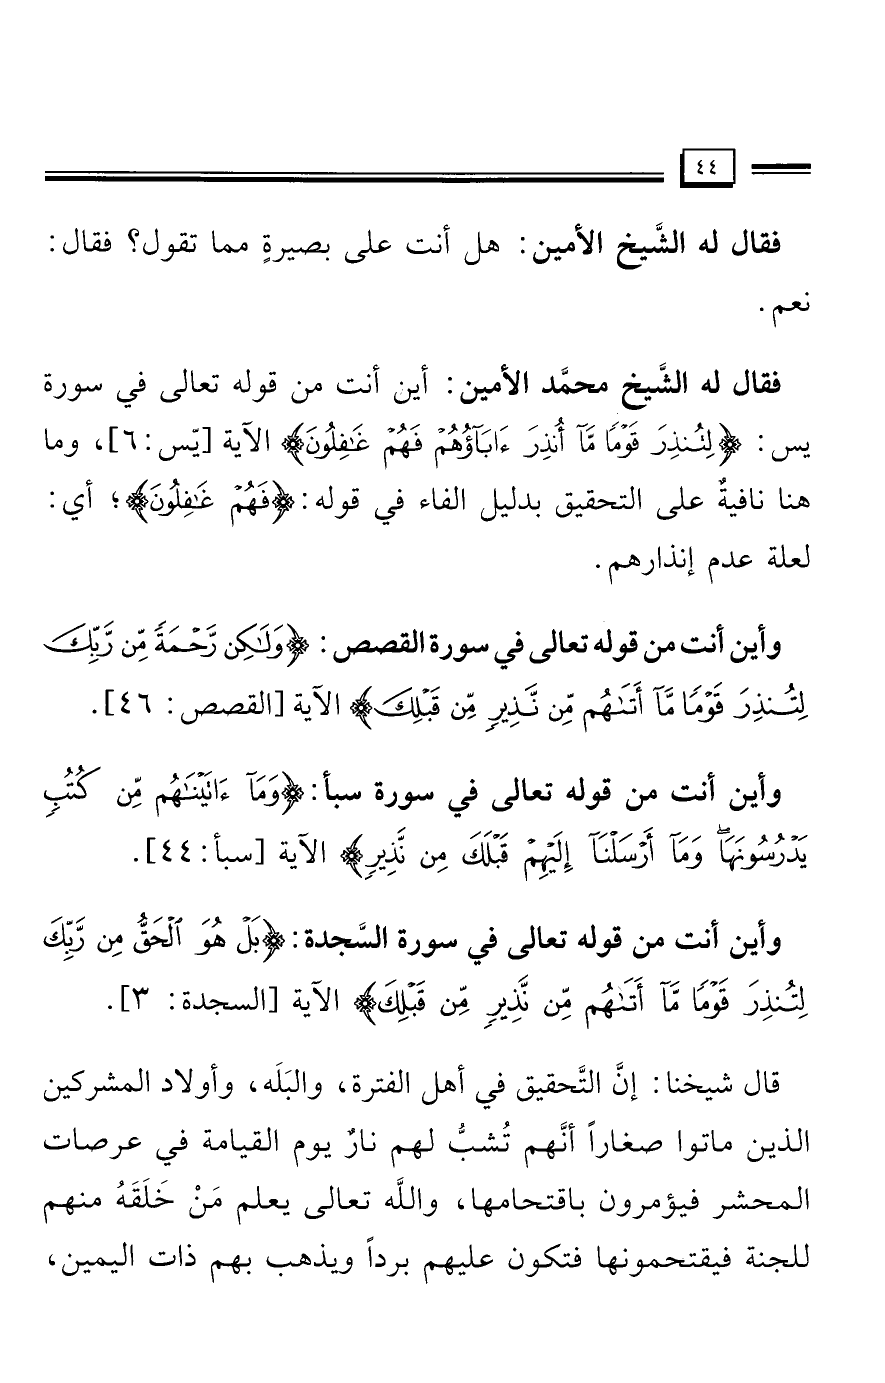 ٤٤
فقال له الشَّيخ الأمين: هل أنت على بصيرةٍ مما تقول؟ فقال:
نعم.
فقال له الشَّيخ محمَّد الأمين: أين أنت من قوله تعالى في سورة
يس: ﴿لِتُنذِرَ قَوْمًا مَّآ أُنذِرَ ءَابَآؤُهُمْ فَهُمْ غَٰفِلُونَ﴾ الآية [يّس: ٦]، وما
هنا نافيةٌ على التحقيق بدليل الفاء في قوله: ﴿فَهُمْ غَٰفِلُونَ﴾؛ أي:
لعلة عدم إنذارهم.
وأين أنت من قوله تعالى في سورة القصص: ﴿وَلَٰكِن رَّحْمَةً مِّن رَّبِّكَ
لِتُنذِرَ قَوْمًا مَّآ أَتَىٰهُم مِّن نَّذِيرٍ مِّن قَبْلِكَ﴾ الآية [القصص: ٤٦].
وأين أنت من قوله تعالى في سورة سبأ: ﴿وَمَآ ءَاتَيْنَٰهُم مِّن كُتُبٍ
يَدْرُسُونَهَاۖ وَمَآ أَرْسَلْنَآ إِلَيْهِمْ قَبْلَكَ مِن نَّذِيرٍ﴾ الآية [سبأ: ٤٤].
وأين أنت من قوله تعالى في سورة السَّجدة: ﴿بَلْ هُوَ ٱلْحَقُّ مِن رَّبِّكَ
لِتُنذِرَ قَوْمًا مَّآ أَتَىٰهُم مِّن نَّذِيرٍ مِّن قَبْلِكَ﴾ الآية [السجدة: ٣].
قال شيخنا: إنَّ التَّحقيق في أهل الفترة، والبَلَه، وأولاد المشركين
الذين ماتوا صغاراً أنَّهم تُشبُّ لهم نارٌ يوم القيامة في عرصات
المحشر فيؤمرون باقتحامها، واللَّه تعالى يعلم مَنْ خَلَقَهُ منهم
للجنة فيقتحمونها فتكون عليهم برداً ويذهب بهم ذات اليمين،